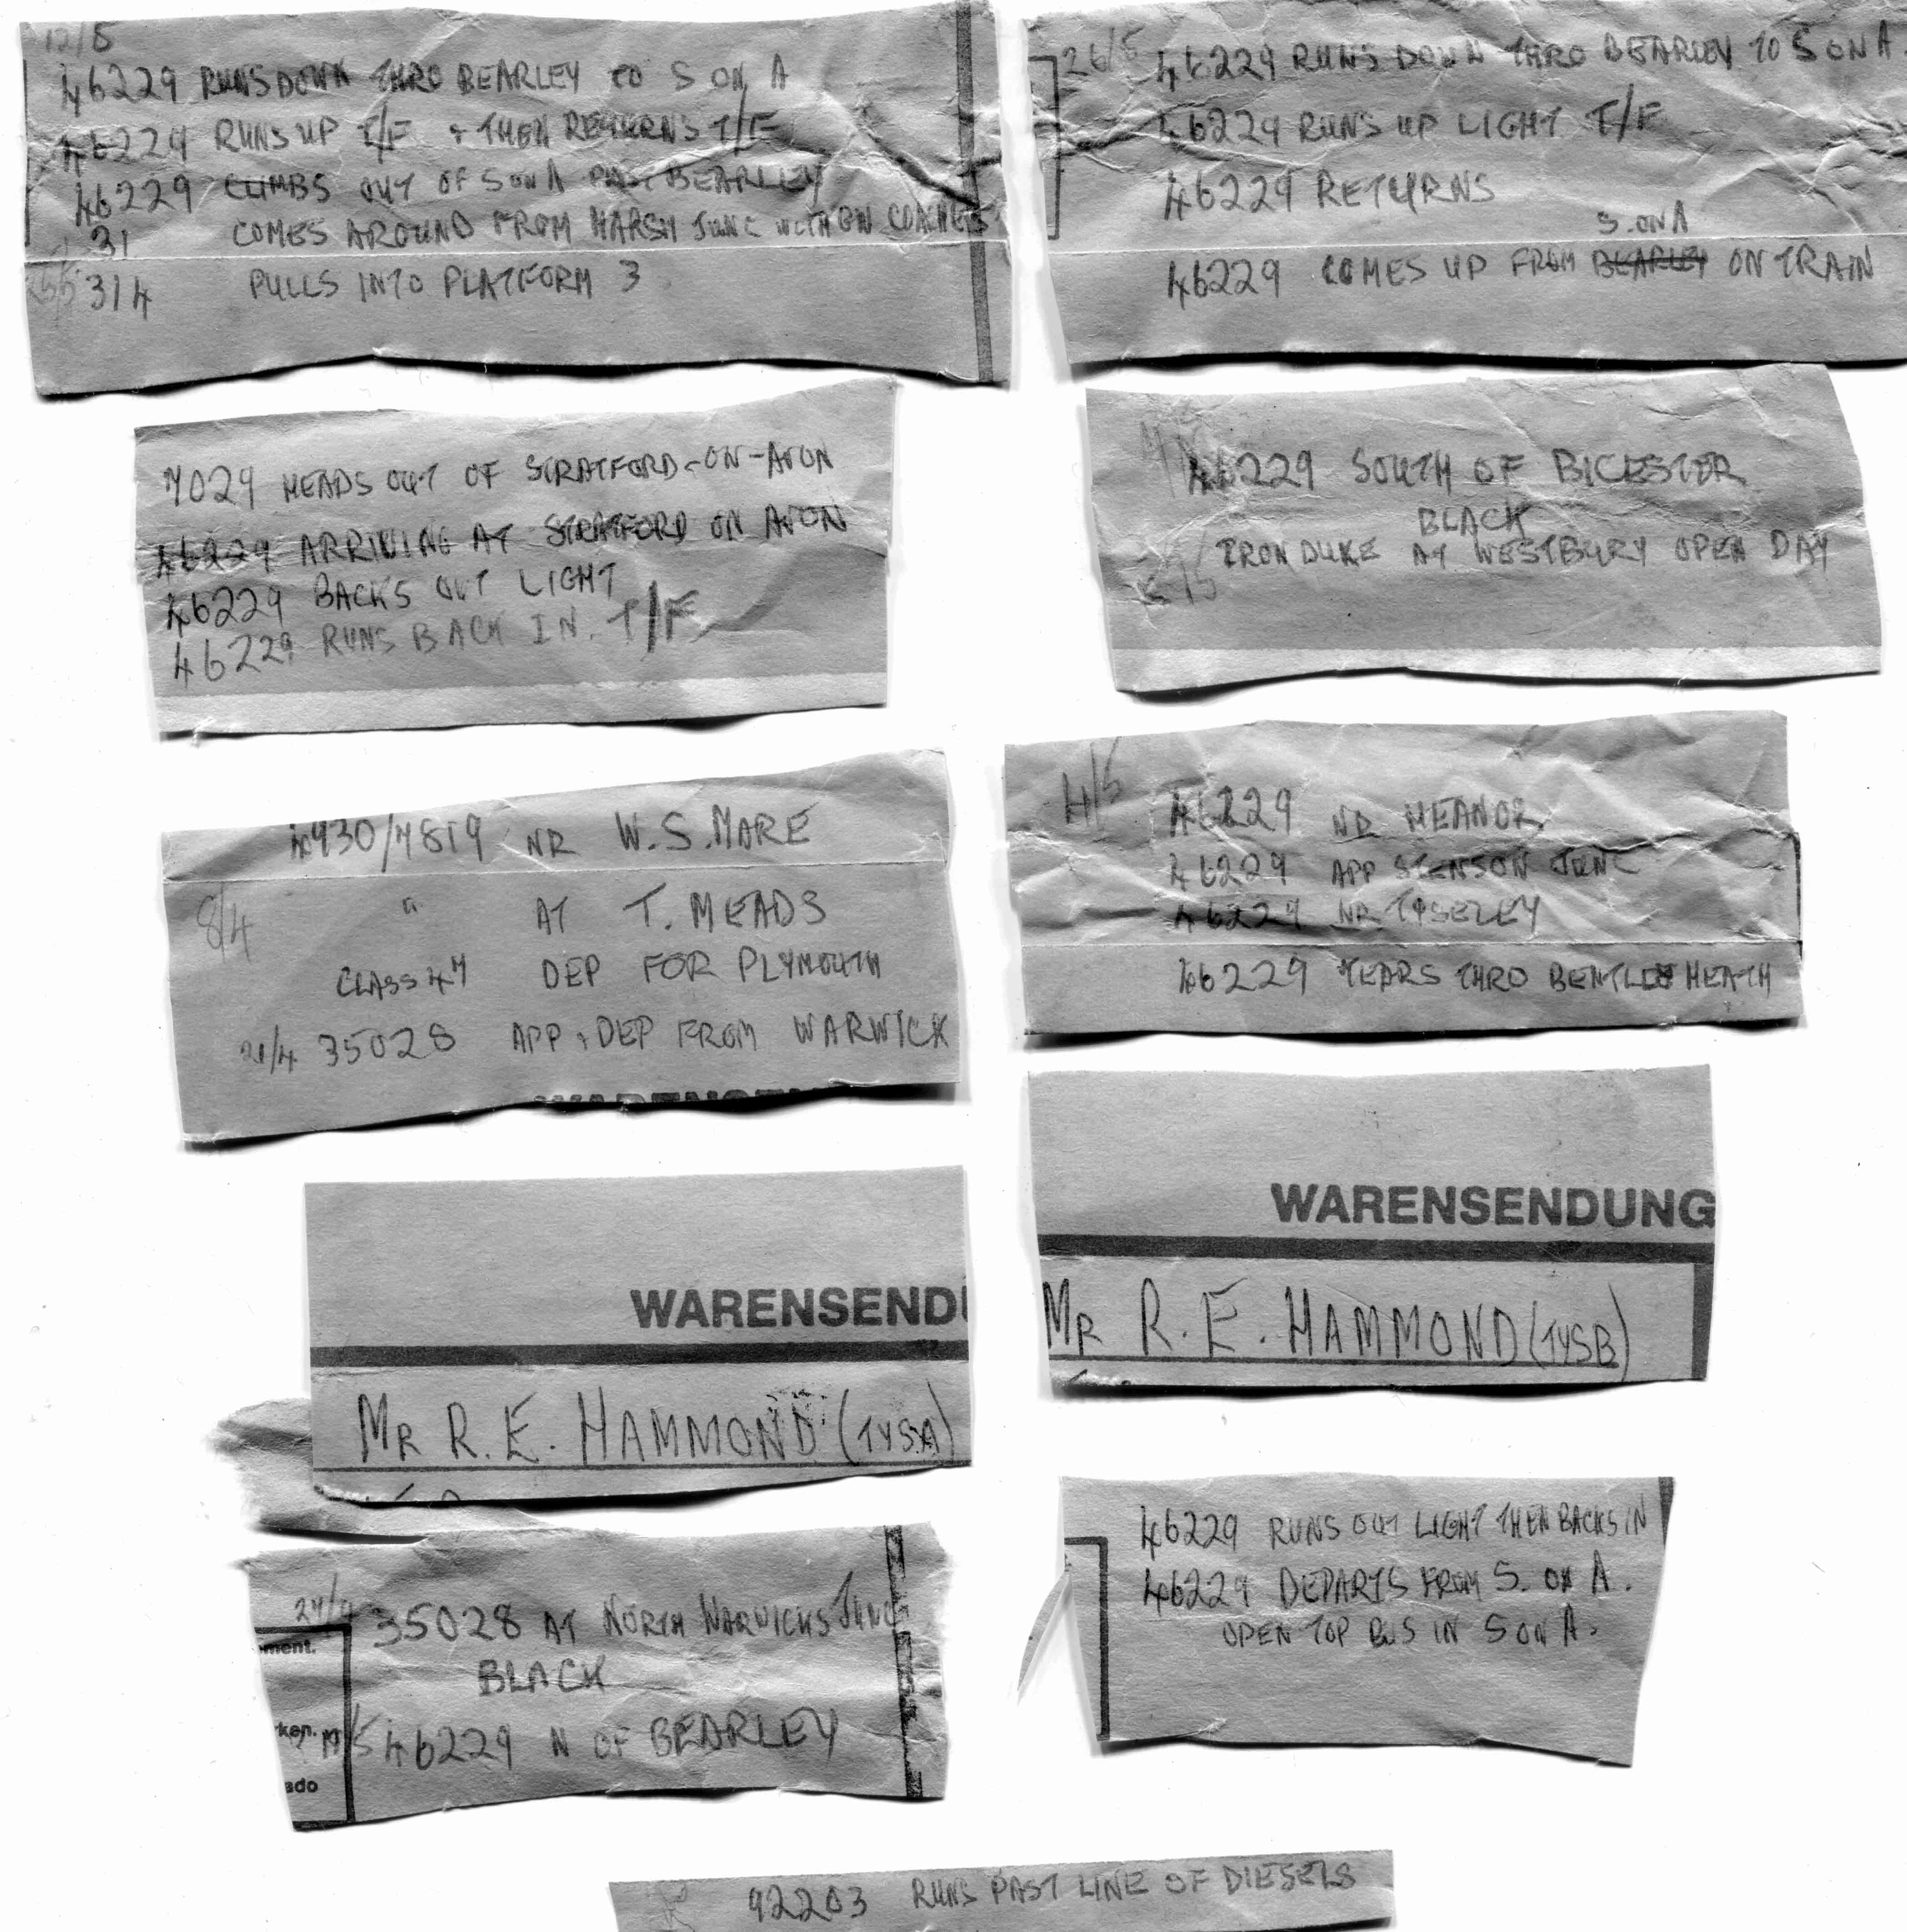 12/5
46229 RUNS DOWN THRO BEARLEY TO S ON A
46229 RUNS UP T/F & THEN RETURNS T/F
46229 CLIMBS OUT OF S ON A PAST BEARLEY
31 COMES AROUND FROM MARSH JUNC WITH GW COACHES
314 PULLS INTO PLATFORM 3
26/5 46229 RUNS DOWN THRO BEARLEY TO S ON A
46229 RUNS UP LIGHT T/F
46229 RETURNS
S. ON A
46229 COMES UP FROM BEARLEY ON TRAIN
7029 HEADS OUT OF STRATFORD-ON-AVON
46229 ARRIVING AT STRATFORD ON AVON
46229 BACKS OUT LIGHT
46229 RUNS BACK IN. T/F
46229 SOUTH OF BICESTER
BLACK
IRON DUKE AT WESTBURY OPEN DAY
4930/7819 NR W.S.MARE
8/4 " AT T. MEADS
CLASS 47 DEP FOR PLYMOUTH
21/4 35028 APP & DEP FROM WARWICK
4/5 46229 NR HEANOR
46229 APP STENSON JUNC
46229 NR TYSELEY
46229 TEARS THRO BENTLEY HEATH
WARENSENDUNG
MR R. E. HAMMOND (TYSB)
WARENSENDU
MR R. E. HAMMOND (TYSA)
46229 RUNS OUT LIGHT THEN BACKS IN
46229 DEPARTS FROM S. ON A.
OPEN TOP BUS IN S ON A.
35028 AT NORTH WARWICKS JUNC
ment.
BLACK
ken.
46229 N OF BEARLEY
ado
92203 RUNS PAST LINE OF DIESELS